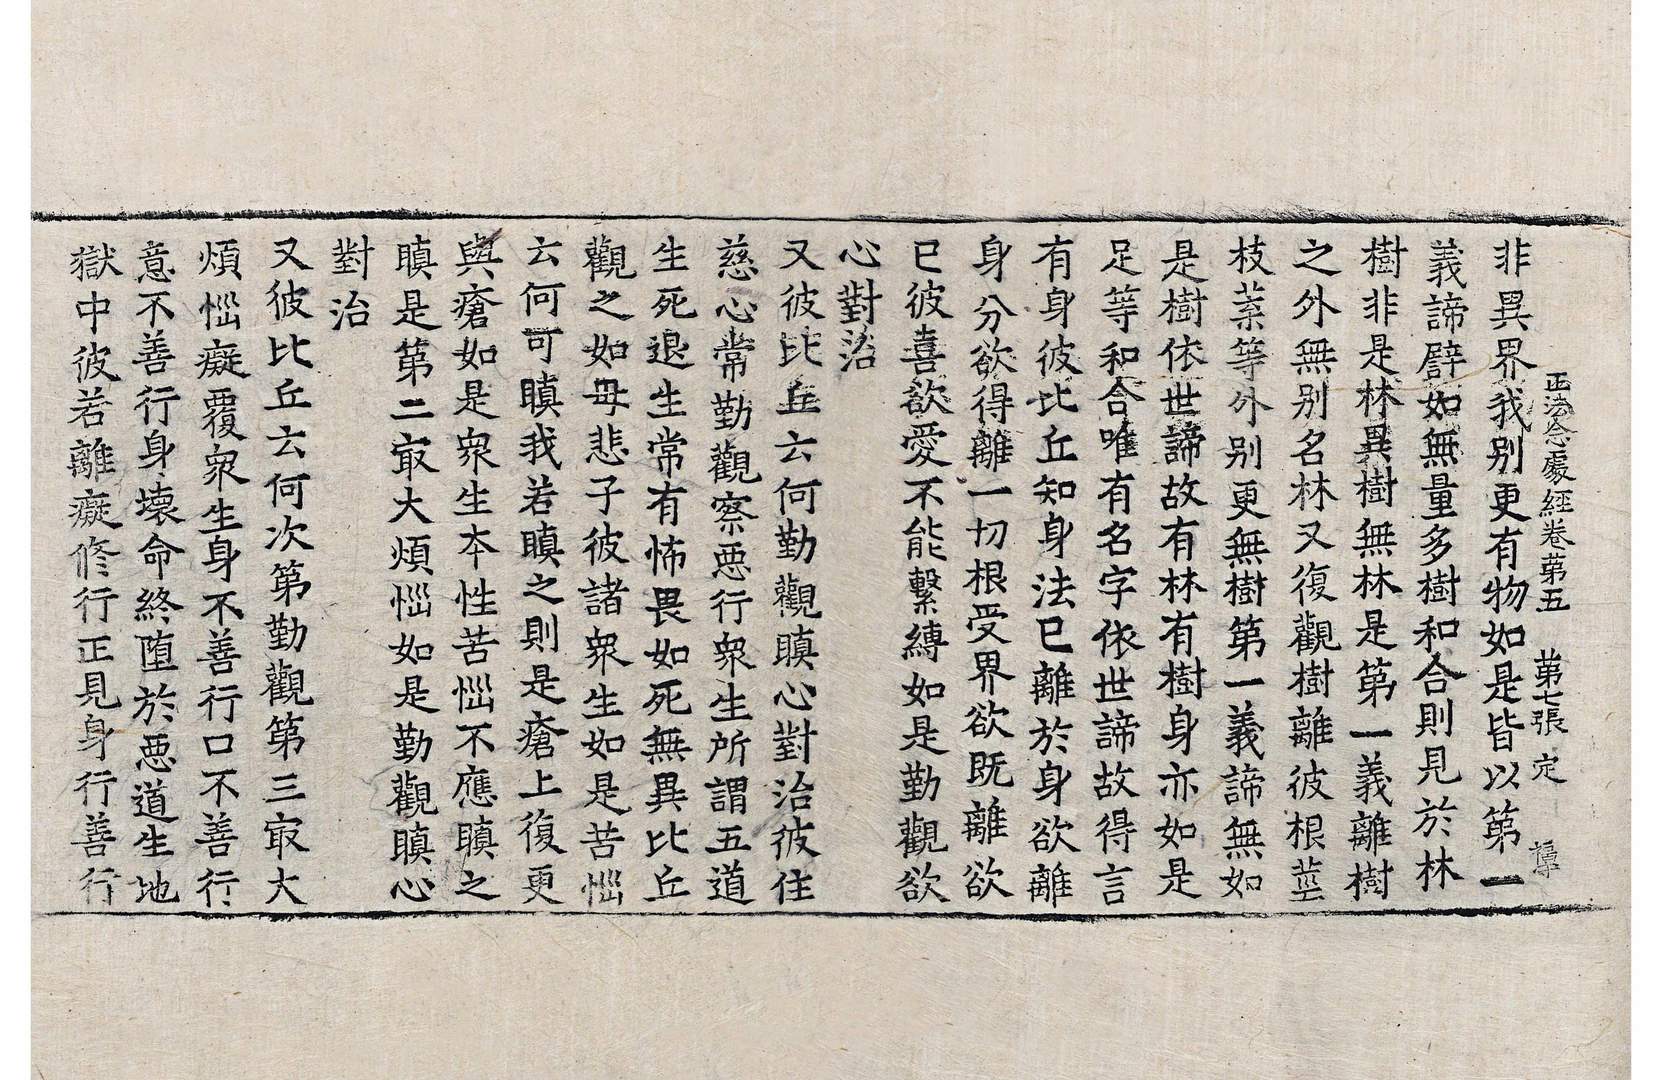 正法念處經卷第五 第七張 定
非異界我別更有物如是皆以第一
義諦譬如無量多樹和合則見於林
樹非是林異樹無林是第一義離樹
之外無別名林又復觀樹離彼根莖
枝葉等外別更無樹第一義諦無如
是樹依世諦故有林有樹身亦如是
足等和合唯有名字依世諦故得言
有身彼比丘知身法已離於身欲離
身分欲得離一切根受界欲既離欲
已彼喜欲愛不能繫縛如是勤觀欲
心對治
又彼比丘云何勤觀瞋心對治彼住
慈心常勤觀察惡行衆生所謂五道
生死退生常有怖畏如死無異比丘
觀之如母悲子彼諸衆生如是苦惱
云何可瞋我若瞋之則是瘡上復更
與瘡如是衆生本性苦惱不應瞋之
瞋是第二冣大煩惱如是勤觀瞋心
對治
又彼比丘云何次第勤觀第三冣大
煩惱癡覆衆生身不善行口不善行
意不善行身壞命終墮於惡道生地
獄中彼若離癡修行正見身行善行